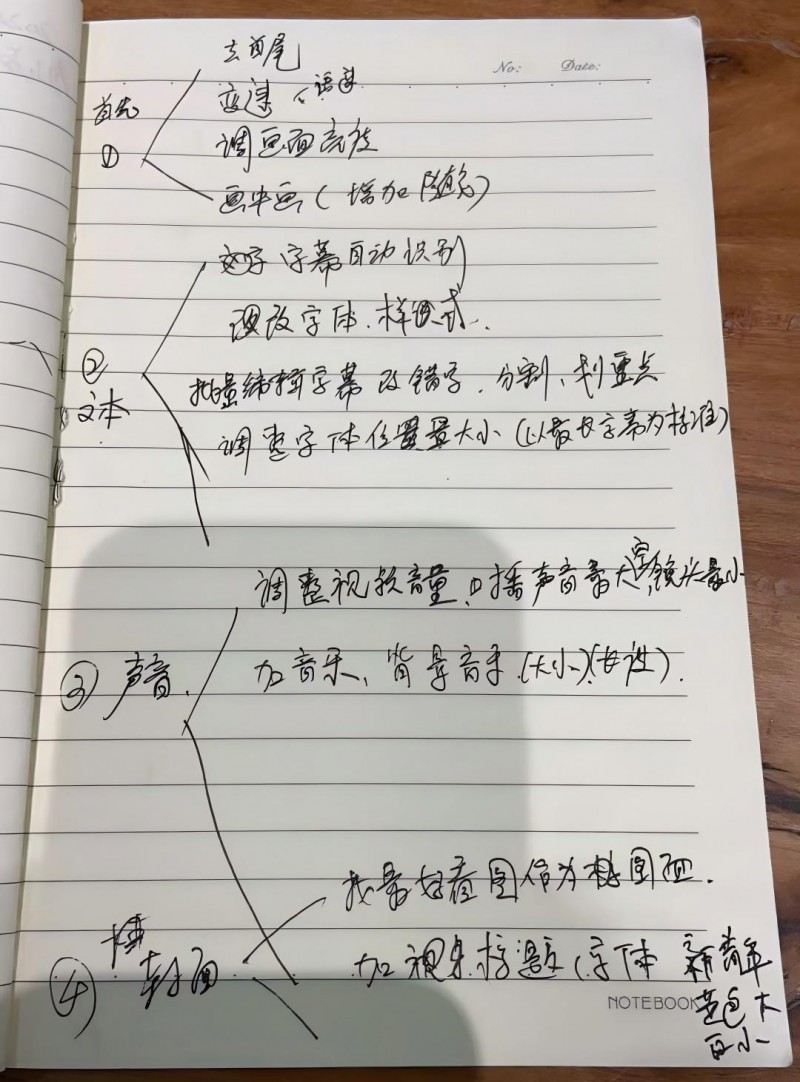 No: Date:
去首尾
首先 变速（语速
①
调画面亮度
画中画（增加）
文字 字幕自动识别
改字体．样式．
②
文本
批量编辑字幕 改错字．分割、划重点
调整字体位置大小（以最长字幕为标准）
调整视频音量．口播声音最大 空镜头最小
③ 声音．
加音乐、背景音乐（大小）（长短）．
找最好看图作为封面．
④ 封面
加标题（字体 新青年
黄色 大
白小
NOTEBOOK